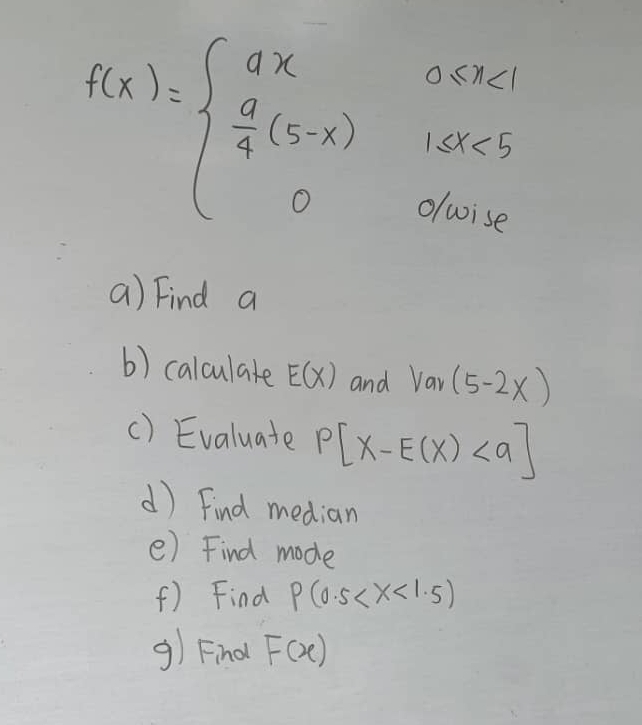 f(x) = { ax 0≤x<1
a/4 (5-x) 1≤x<5
0 o/wise
a) Find a
b) calculate E(X) and Var(5-2X)
c) Evaluate P[X-E(X)<a]
d) Find median
e) Find mode
f) Find P(0.5<X<1.5)
g) Find F(x)